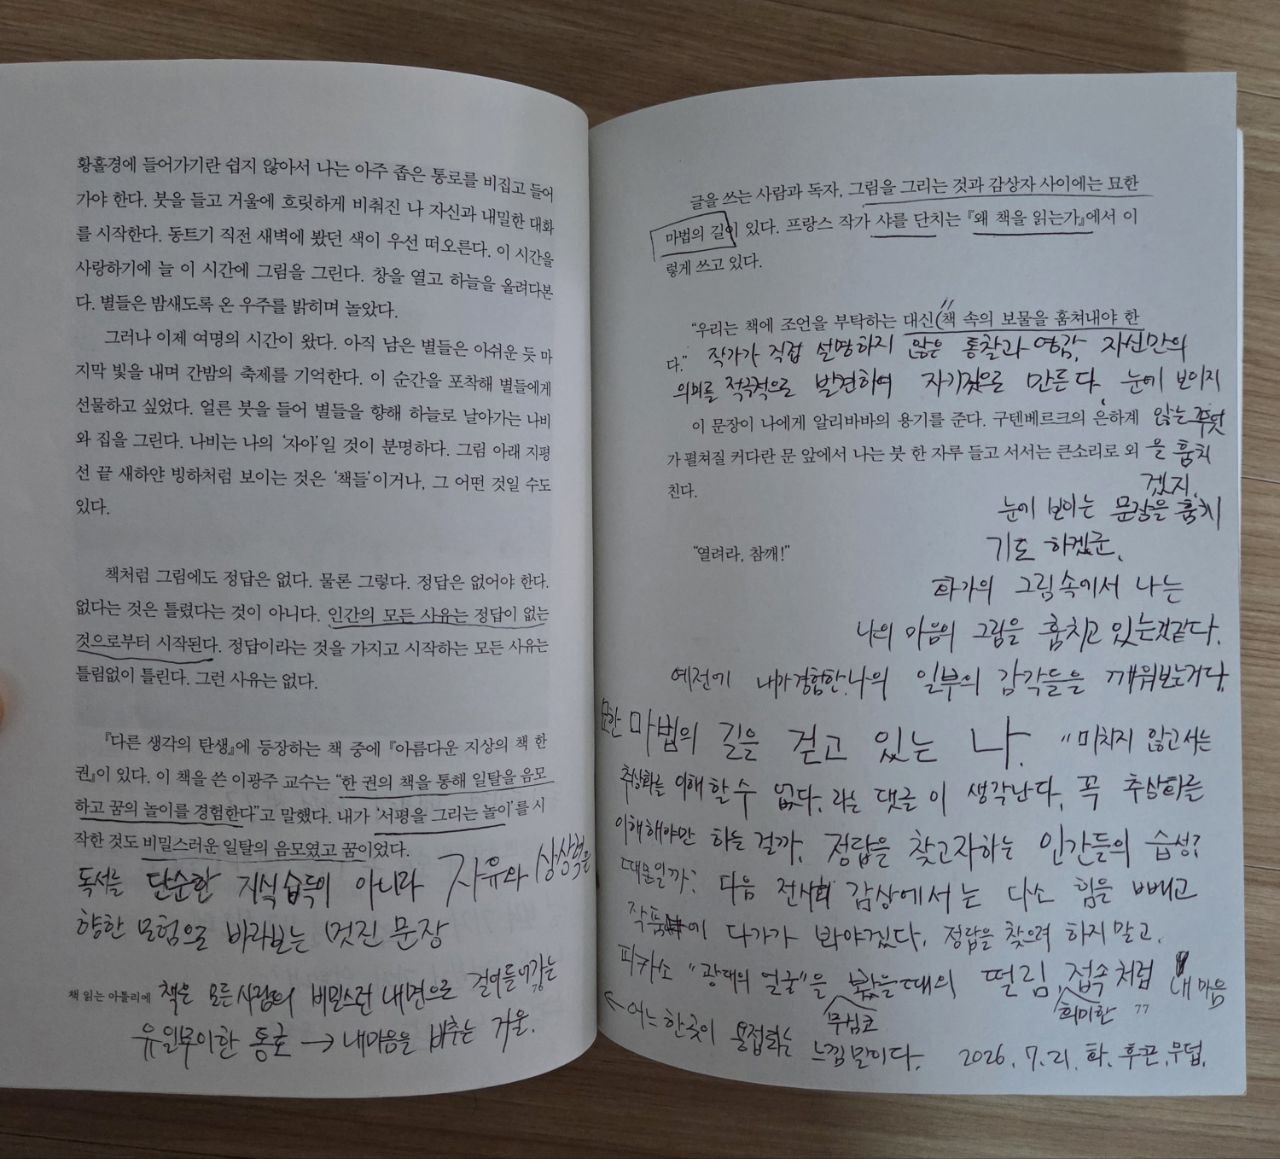 황홀경에 들어가기란 쉽지 않아서 나는 아주 좁은 통로를 비집고 들어
가야 한다. 붓을 들고 거울에 흐릿하게 비춰진 나 자신과 내밀한 대화
를 시작한다. 동트기 직전 새벽에 봤던 색이 우선 떠오른다. 이 시간을
사랑하기에 늘 이 시간에 그림을 그린다. 창을 열고 하늘을 올려다본
다. 별들은 밤새도록 온 우주를 밝히며 놀았다.
그러나 이제 여명의 시간이 왔다. 아직 남은 별들은 아쉬운 듯 마
지막 빛을 내며 간밤의 축제를 기억한다. 이 순간을 포착해 별들에게
선물하고 싶었다. 얼른 붓을 들어 별들을 향해 하늘로 날아가는 나비
와 집을 그린다. 나비는 나의 ‘자아’일 것이 분명하다. 그림 아래 지평
선 끝 새하얀 빙하처럼 보이는 것은 ‘책들’이거나, 그 어떤 것일 수도
있다.
책처럼 그림에도 정답은 없다. 물론 그렇다. 정답은 없어야 한다.
없다는 것은 틀렸다는 것이 아니다. 인간의 모든 사유는 정답이 없는
것으로부터 시작된다. 정답이라는 것을 가지고 시작하는 모든 사유는
틀림없이 틀린다. 그런 사유는 없다.
『다른 생각의 탄생』에 등장하는 책 중에 『아름다운 지상의 책 한
권』이 있다. 이 책을 쓴 이광주 교수는 “한 권의 책을 통해 일탈을 음모
하고 꿈의 놀이를 경험한다”고 말했다. 내가 ‘서평을 그리는 놀이’를 시
작한 것도 비밀스러운 일탈의 음모였고 꿈이었다.
독서는 단순한 지식 습득이 아니라 자유와 상상력을
향한 모험으로 바라보는 멋진 문장
책 읽는 아틀리에
책은 모든 사람의 비밀스런 내면으로 걸어들어가는
유일무이한 통로 → 내마음을 비추는 거울.
글을 쓰는 사람과 독자, 그림을 그리는 것과 감상자 사이에는 묘한
마법의 길이 있다. 프랑스 작가 샤를 단치는 『왜 책을 읽는가』에서 이
렇게 쓰고 있다.
“우리는 책에 조언을 부탁하는 대신 책 속의 보물을 훔쳐내야 한
다.” 작가가 직접 설명하지 않은 통찰과 영감, 자신만의
의미를 적극적으로 발견하여 자기것으로 만든다, 눈에 보이지
이 문장이 나에게 알리바바의 용기를 준다. 구텐베르크의 은하계 않는 무엇
가 펼쳐질 커다란 문 앞에서 나는 붓 한 자루 들고 서서는 큰소리로 외 을 훔치
친다. 겠지.
눈에 보이는 문장을 훔치
“열려라, 참깨!” 기도 하겠군.
화가의 그림속에서 나는
나의 마음의 그림을 훔치고 있는것같다.
예전에 내가 경험한 나의 일부의 감각들을 깨워보는거다.
묘한 마법의 길을 걷고 있는 나. “미치지 않고서는
추상화를 이해 할 수 없다. 라는 댓글이 생각난다. 꼭 추상화를
이해해야만 하는 걸까. 정답을 찾고자하는 인간들의 습성?
때문일까? 다음 전시회 감상에서는 다소 힘을 빼고
작품에 다가가 봐야겠다. 정답을 찾으려 하지 말고.
피카소 “광대의 얼굴”을 봤을때의 떨림, 접속처럼 내 마음
무심코 희미한 ”
← 어느 한곳이 용접하는 느낌말이다. 2026. 7. 21. 화. 후끈, 무덥.